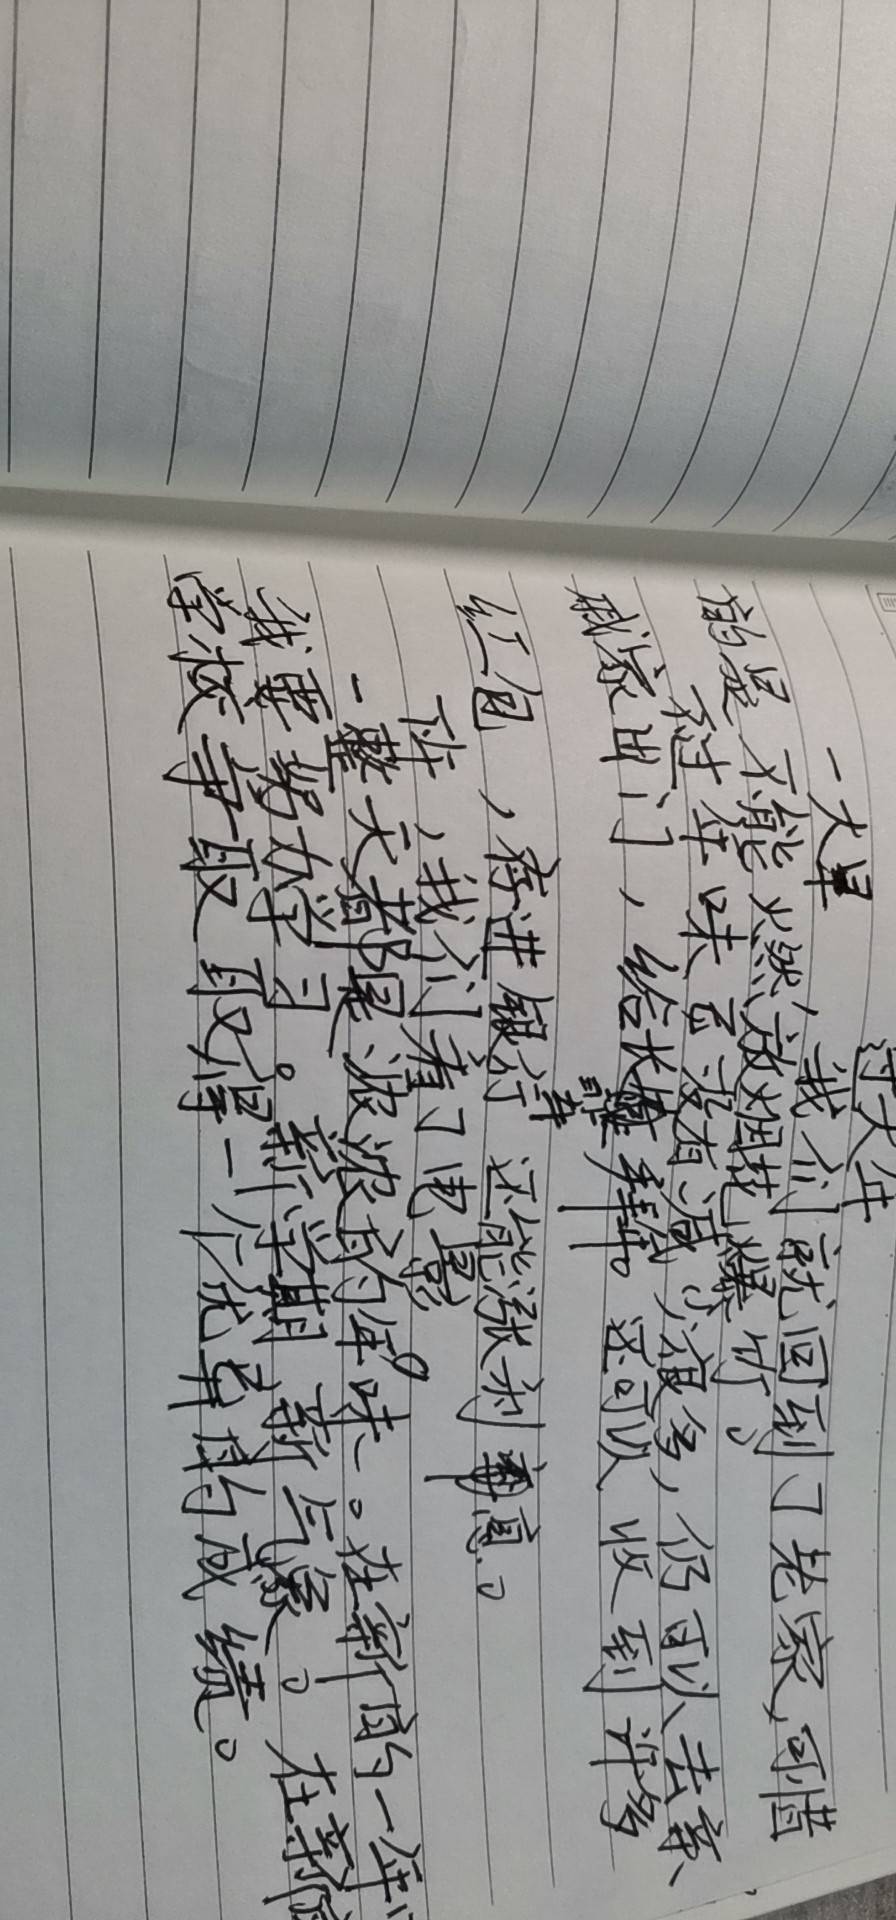 过大年
一大早，我们就回到了老家，可惜
的是不能燃放烟花爆竹。
不过年味丢没有减少很多，仍可以去亲
戚家出门，给长辈拜年。还可以收到许多
红包，存进银行还能涨利息。
下午，我们看了电影。
一整天都是浓浓的年味。在新的一年
我要努力学习。新学期新气象。在新的
学校争取取得一个优异的成绩。